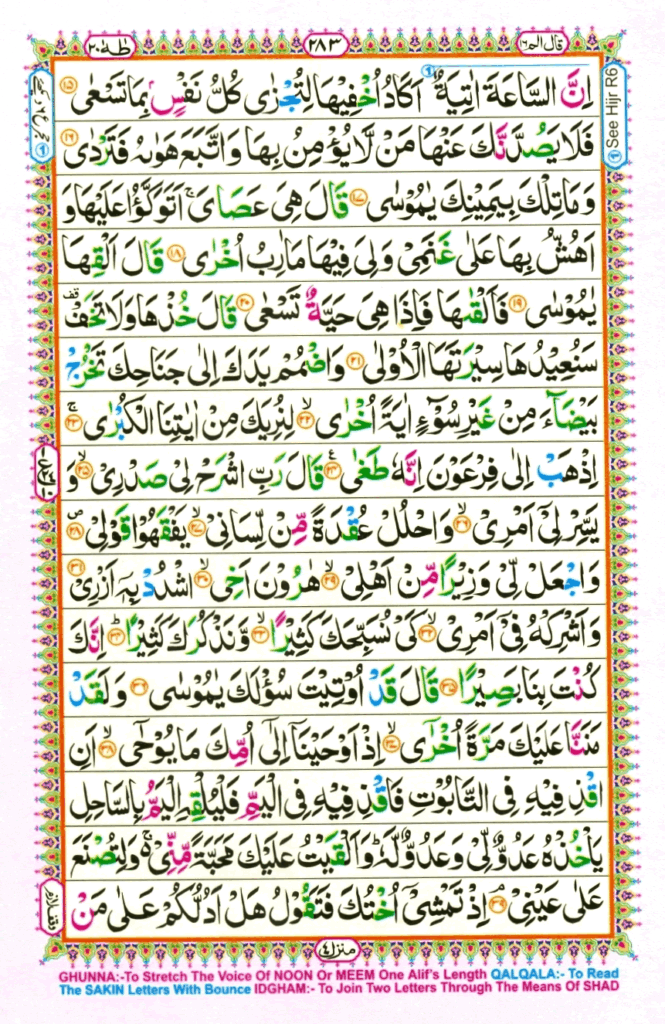 قال الم ١٦
٢٨٣
طٰهٰ ٢٠
See Hijr R6
اِنَّ السَّاعَةَ اٰتِيَةٌ اَكَادُ اُخْفِيْهَا لِتُجْزٰى كُلُّ نَفْسٍۭ بِمَا تَسْعٰى ﴿۱۵﴾
فَلَا يَصُدَّنَّكَ عَنْهَا مَنْ لَّا يُؤْمِنُ بِهَا وَاتَّبَعَ هَوٰىهُ فَتَرْدٰى ﴿۱۶﴾
وَمَا تِلْكَ بِيَمِيْنِكَ يٰمُوْسٰى ﴿۱۷﴾ قَالَ هِىَ عَصَاىَ ۚ اَتَوَكَّؤُا عَلَيْهَا وَ
اَهُشُّ بِهَا عَلٰى غَنَمِىْ وَلِىَ فِيْهَا مَاٰرِبُ اُخْرٰى ﴿۱۸﴾ قَالَ اَلْقِهَا
يٰمُوْسٰى ﴿۱۹﴾ فَاَلْقٰىهَا فَاِذَا هِىَ حَيَّةٌ تَسْعٰى ﴿۲۰﴾ قَالَ خُذْهَا وَلَا تَخَفْ
سَنُعِيْدُهَا سِيْرَتَهَا الْاُوْلٰى ﴿۲۱﴾ وَاضْمُمْ يَدَكَ اِلٰى جَنَاحِكَ تَخْرُجْ
بَيْضَآءَ مِنْ غَيْرِ سُوْٓءٍ اٰيَةً اُخْرٰى ﴿۲۲﴾ لِنُرِيَكَ مِنْ اٰيٰتِنَا الْكُبْرٰى ﴿۲۳﴾
اِذْهَبْ اِلٰى فِرْعَوْنَ اِنَّهٗ طَغٰى ﴿۲۴﴾ قَالَ رَبِّ اشْرَحْ لِىْ صَدْرِىْ ﴿۲۵﴾ وَ
يَسِّرْ لِىْٓ اَمْرِىْ ﴿۲۶﴾ وَاحْلُلْ عُقْدَةً مِّنْ لِّسَانِىْ ﴿۲۷﴾ يَفْقَهُوْا قَوْلِىْ ﴿۲۸﴾
وَاجْعَلْ لِّىْ وَزِيْرًا مِّنْ اَهْلِىْ ﴿۲۹﴾ هٰرُوْنَ اَخِى ﴿۳۰﴾ اشْدُدْ بِهٖٓ اَزْرِىْ ﴿۳۱﴾
وَاَشْرِكْهُ فِىْٓ اَمْرِىْ ﴿۳۲﴾ كَىْ نُسَبِّحَكَ كَثِيْرًا ﴿۳۳﴾ وَّنَذْكُرَكَ كَثِيْرًا ﴿۳۴﴾ اِنَّكَ
كُنْتَ بِنَا بَصِيْرًا ﴿۳۵﴾ قَالَ قَدْ اُوْتِيْتَ سُؤْلَكَ يٰمُوْسٰى ﴿۳۶﴾ وَلَقَدْ
مَنَنَّا عَلَيْكَ مَرَّةً اُخْرٰٓى ﴿۳۷﴾ اِذْ اَوْحَيْنَآ اِلٰٓى اُمِّكَ مَا يُوْحٰٓى ﴿۳۸﴾ اَنِ
اقْذِفِيْهِ فِى التَّابُوْتِ فَاقْذِفِيْهِ فِى الْيَمِّ فَلْيُلْقِهِ الْيَمُّ بِالسَّاحِلِ
يَاْخُذْهُ عَدُوٌّ لِّىْ وَعَدُوٌّ لَّهٗ ؕ وَاَلْقَيْتُ عَلَيْكَ مَحَبَّةً مِّنِّىْ ۚ وَلِتُصْنَعَ
عَلٰى عَيْنِىْ ﴿۳۹﴾ اِذْ تَمْشِىْٓ اُخْتُكَ فَتَقُوْلُ هَلْ اَدُلُّكُمْ عَلٰى مَنْ
منزل ٤
GHUNNA:-To Stretch The Voice Of NOON Or MEEM One Alif's Length QALQALA:- To Read
The SAKIN Letters With Bounce IDGHAM:- To Join Two Letters Through The Means Of SHAD